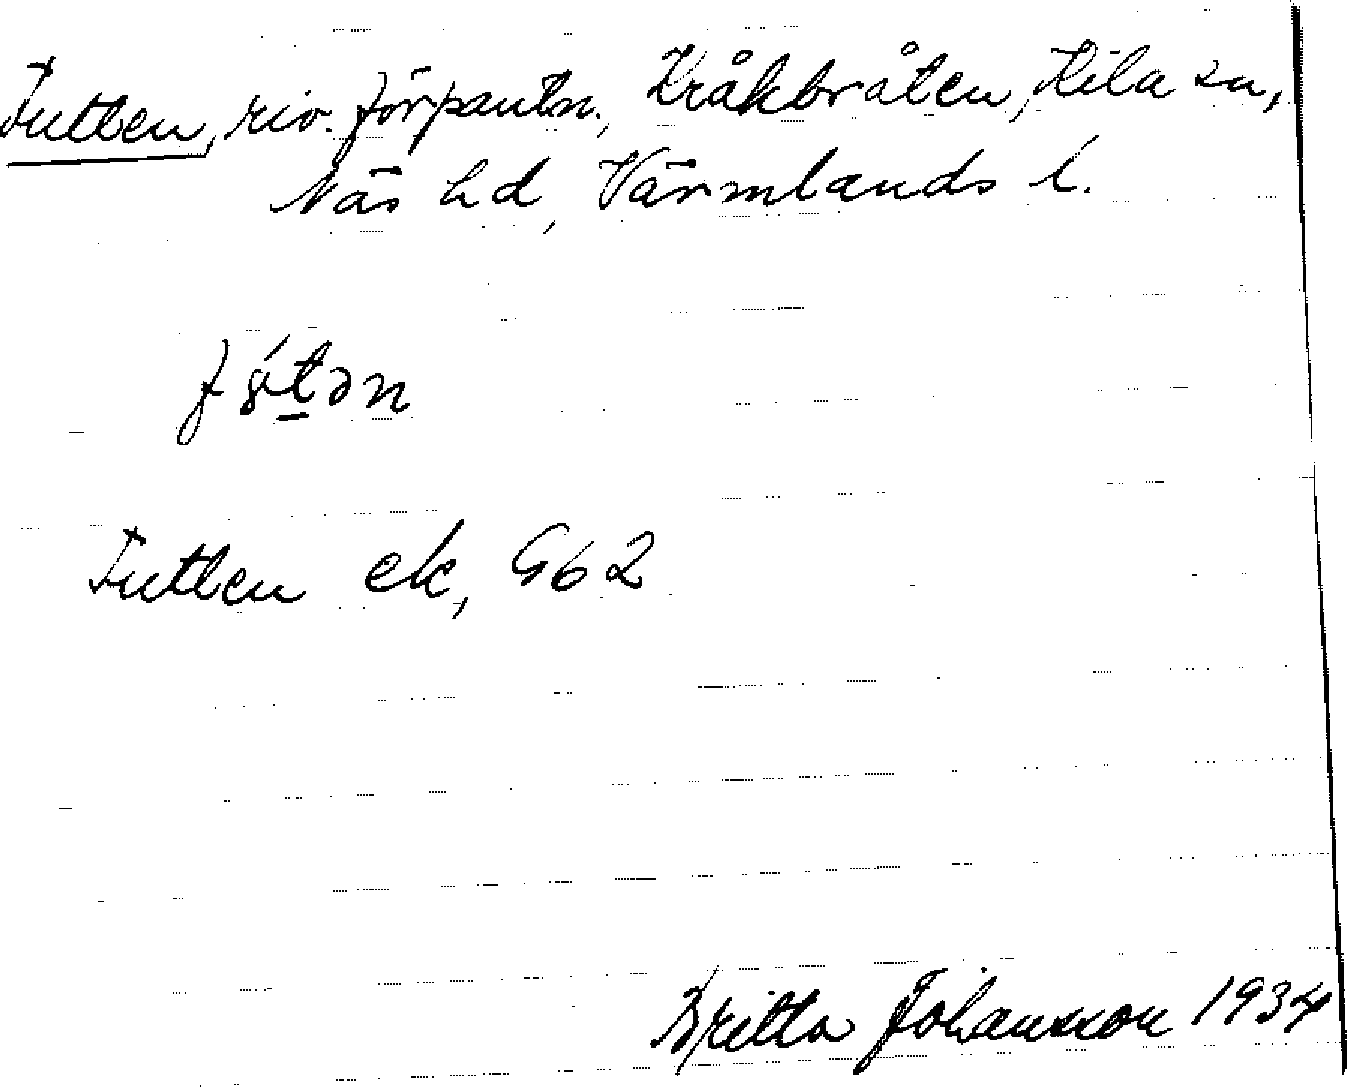 Futten, riv. förpantn., Kråkbråten, Kila sn,
Näs hd, Värmlands l.
Futten ek, G62
Britta Johansson 1934